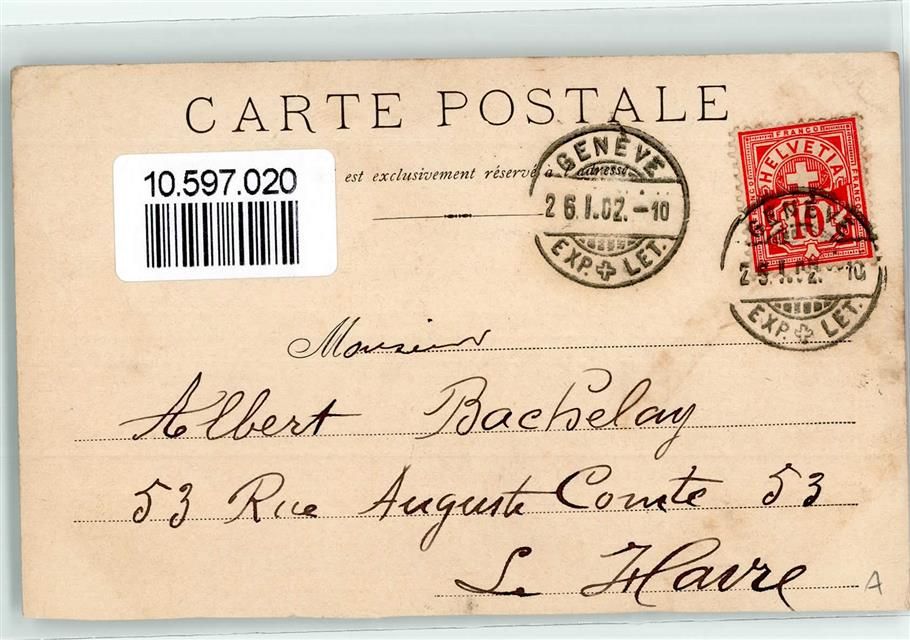 CARTE POSTALE
10.597.020
est exclusivement réservé à adresse
GENÈVE
26.I.02.-10
EXP. LET.
FRANCO
HELVETIA
FRANCO
10
GENÈVE
26.I.02.-10
EXP. LET.
Monsieur
Albert Bachelay
53 Rue Auguste Comte 53
Le Havre
A